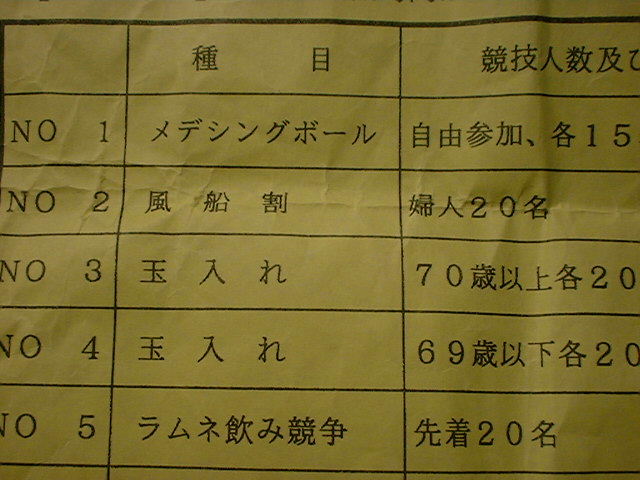 種 目 競技人数及び
NO 1 メデシングボール 自由参加、各15
NO 2 風 船 割 婦人20名
NO 3 玉 入 れ 70歳以上各20
NO 4 玉 入 れ 69歳以下各20
NO 5 ラムネ飲み競争 先着20名